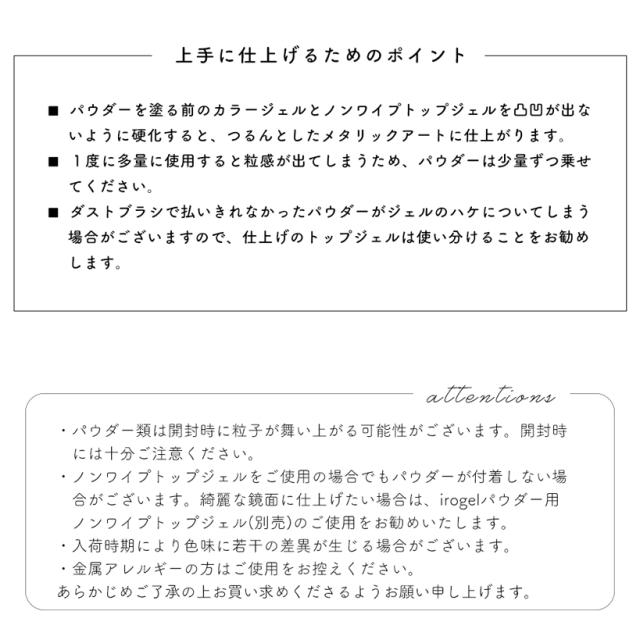 上手に仕上げるためのポイント
■ パウダーを塗る前のカラージェルとノンワイプトップジェルを凸凹が出な
いように硬化すると、つるんとしたメタリックアートに仕上がります。
■ １度に多量に使用すると粒感が出てしまうため、パウダーは少量ずつ乗せ
てください。
■ ダストブラシで払いきれなかったパウダーがジェルのハケについてしまう
場合がございますので、仕上げのトップジェルは使い分けることをお勧め
します。
attentions
・パウダー類は開封時に粒子が舞い上がる可能性がございます。開封時
には十分ご注意ください。
・ノンワイプトップジェルをご使用の場合でもパウダーが付着しない場
合がございます。綺麗な鏡面に仕上げたい場合は、irogelパウダー用
ノンワイプトップジェル(別売)のご使用をお勧めいたします。
・入荷時期により色味に若干の差異が生じる場合がございます。
・金属アレルギーの方はご使用をお控えください。
あらかじめご了承の上お買い求めくださるようお願い申し上げます。